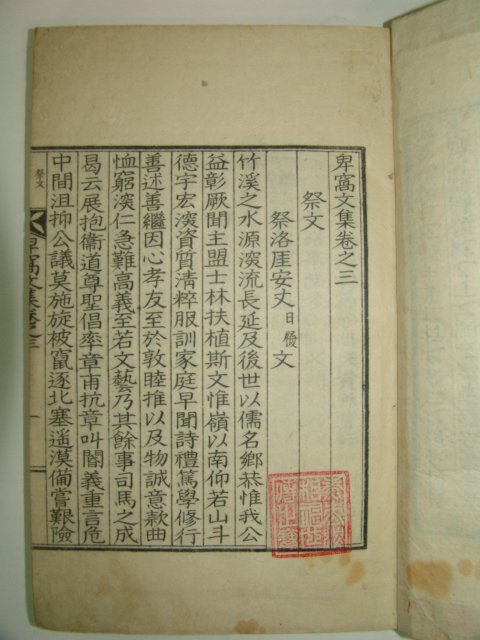 卑窩文集卷之三
祭文
祭洛厓安丈日履文
竹溪之水源深流長延及後世以儒名鄉恭惟我公
益彰厥聞主盟士林扶植斯文惟嶺以南仰若山斗
德宇宏深資質清粹服訓家庭早聞詩禮篤學修行
善述善繼因心孝友至於敦睦推以及物誠意款曲
恤窮深仁急難高義至若文藝乃其餘事司馬之成
曷云展抱衞道尊聖倡率章甫抗章叫閽義重言危
中間沮抑公議莫施旋被竄逐北塞遥漠備嘗艱險
祭文
卑窩文集卷三
一